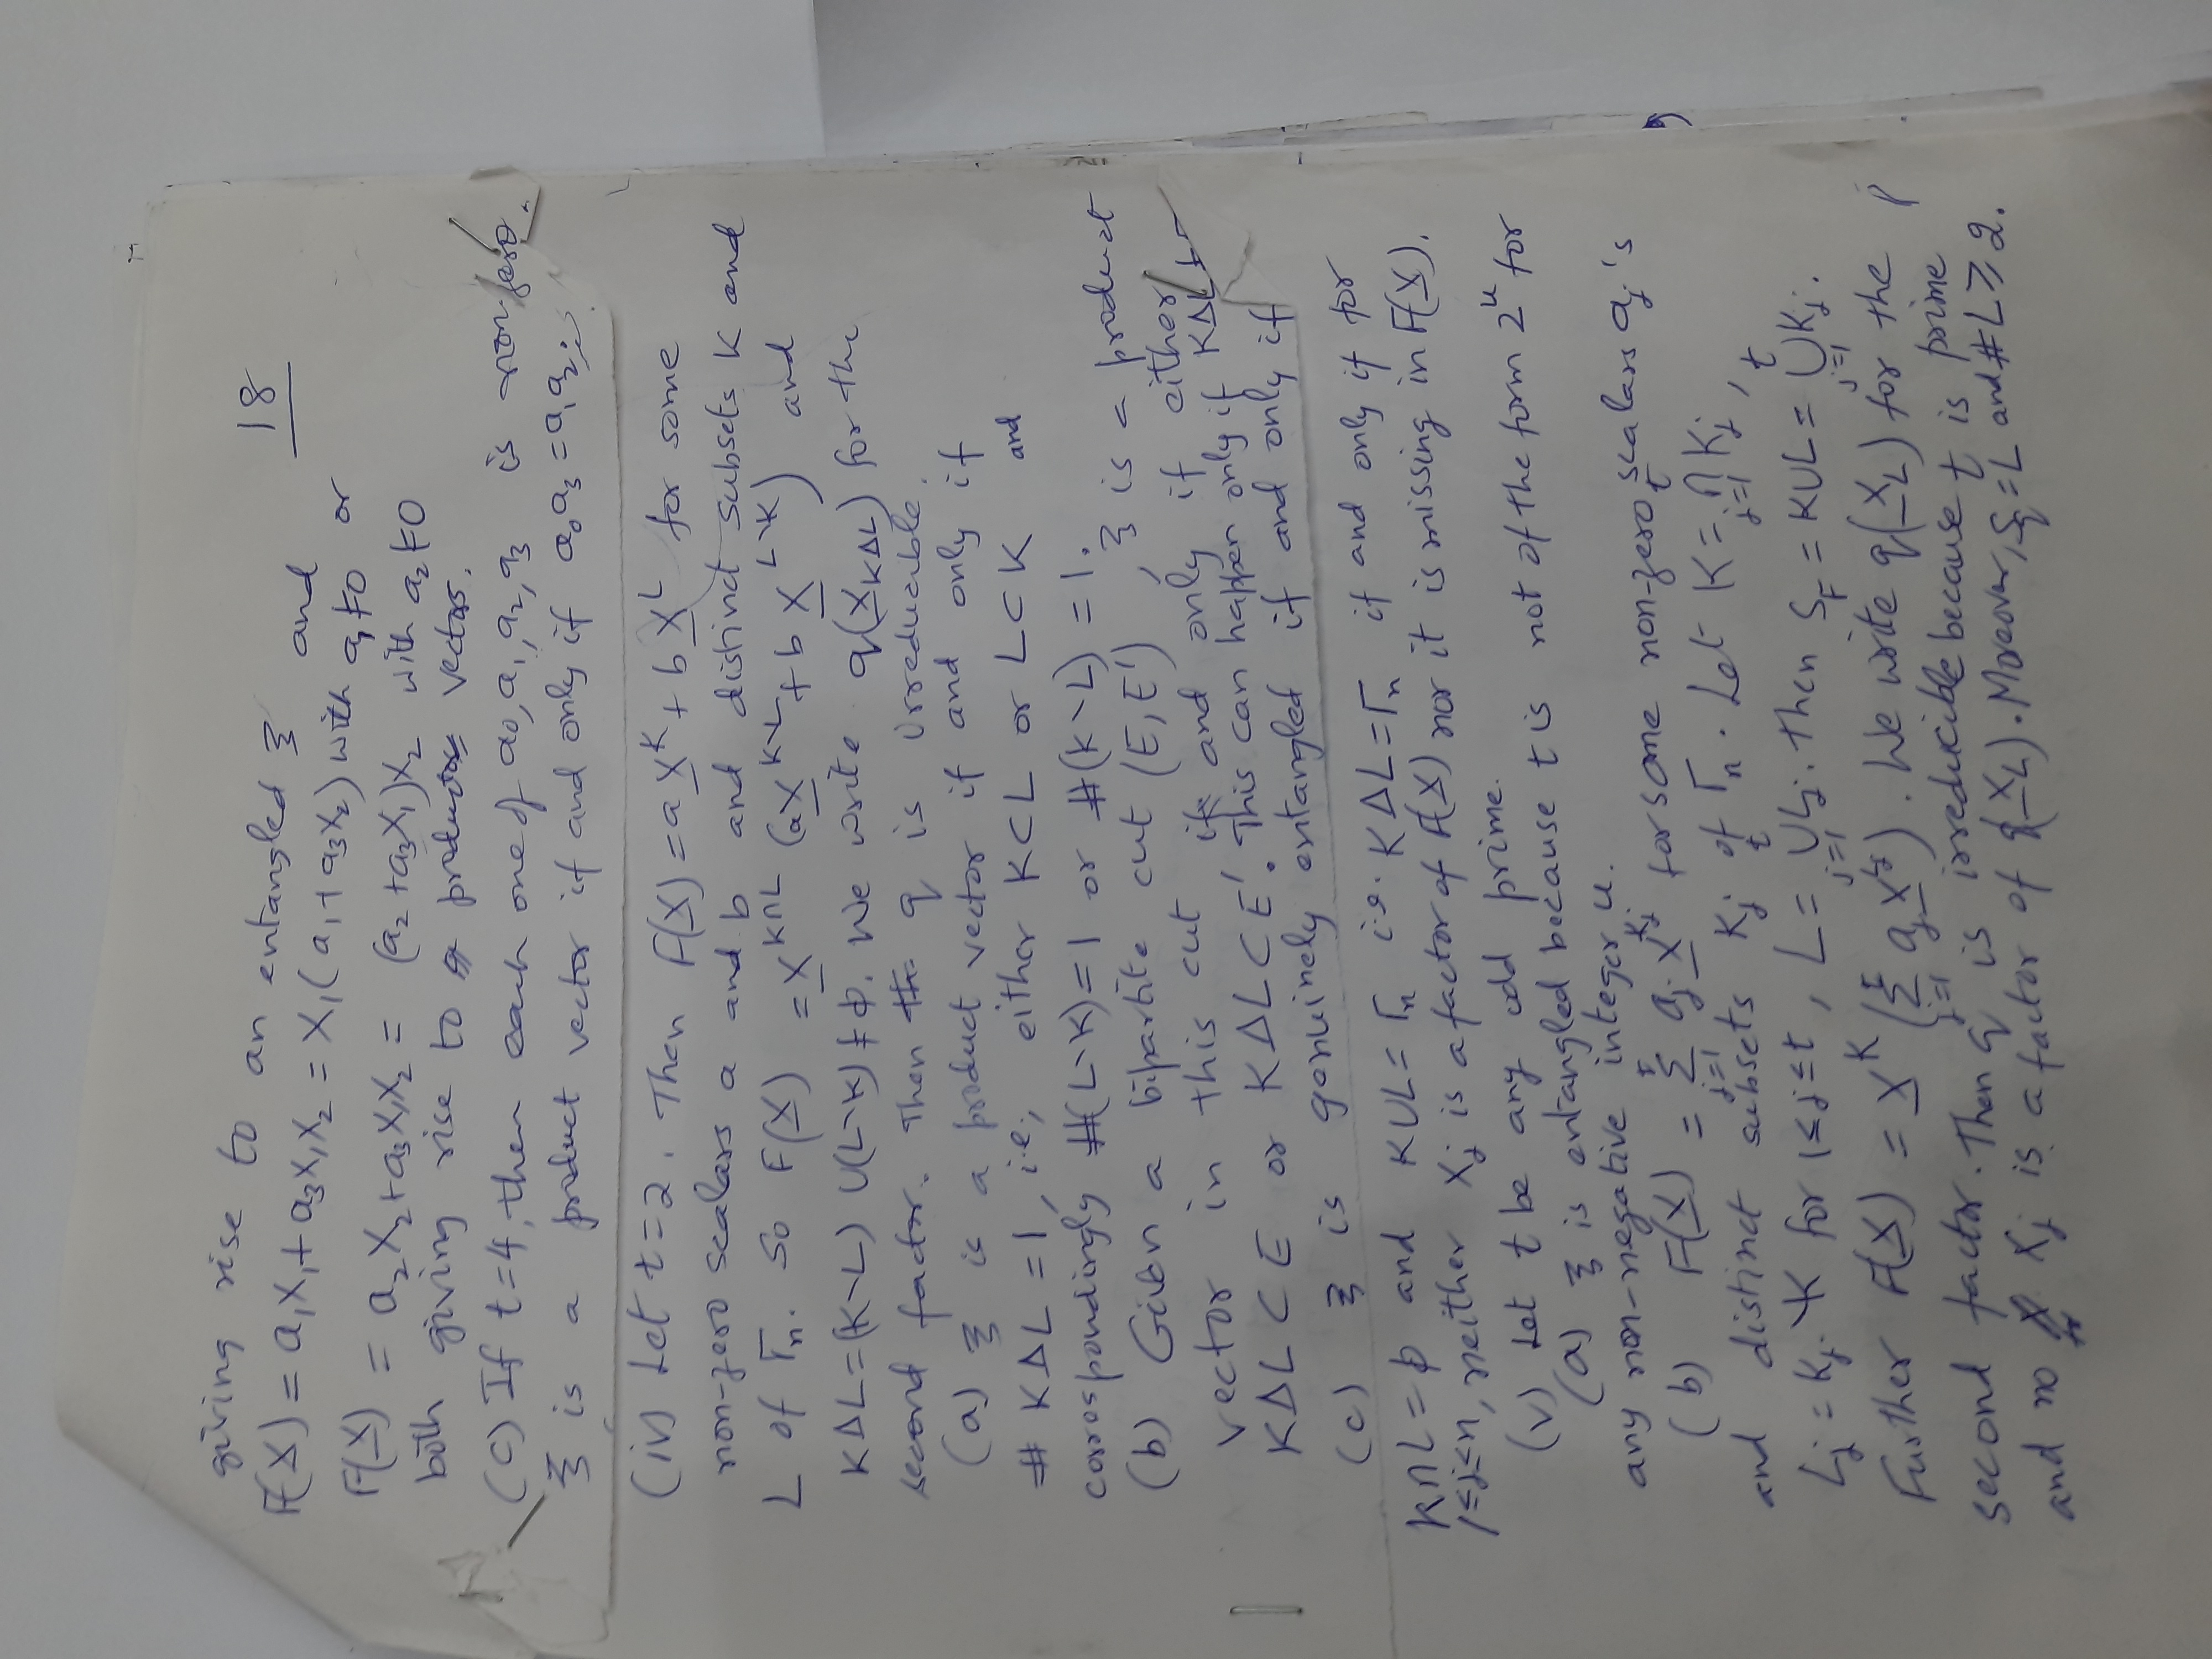 18
giving rise to an entangled ξ and
F(X) = a₁X₁ + a₃X₁X₂ = X₁(a₁ + a₃X₂) with a₁ ≠ 0 or
F(X) = a₂X₂ + a₃X₁X₂ = (a₂ + a₃X₁)X₂ with a₂ ≠ 0
both giving rise to product vectors.
(c) If t=4, then each one of a₀, a₁, a₂, a₃ is non-zero.
ξ is a product vector if and only if a₀a₃ = a₁a₂.
(iv) Let t=2. Then F(X) = a X^K + b X^L for some
non-zero scalars a and b and distinct subsets K and
L of Γₙ. So F(X) = X^{K∩L} (a X^{K∖L} + b X^{L∖K}) and
KΔL = (K∖L) ∪ (L∖K) ≠ ϕ. We write q(X_{KΔL}) for the
second factor. Then q is irreducible.
(a) ξ is a product vector if and only if
# KΔL = 1, i.e., either K⊂L or L⊂K and
correspondingly #(L∖K)=1 or #(K∖L) = 1.
(b) Given a bipartite cut (E, E'), ξ is a product
vector in this cut, if and only if either
KΔL ⊂ E or KΔL ⊂ E'. This can happen only if KΔL ≠
(c) ξ is genuinely entangled if and only if
K∩L = ϕ and K∪L = Γₙ i.e. KΔL = Γₙ if and only if for
1≤j≤n, neither X_j is a factor of F(X) nor it is missing in F(X).
(v) Let t be any odd prime.
(a) ξ is entangled because t is not of the form 2^u for
any non-negative integer u.
(b) F(X) = Σ_{j=1}^{t} a_j X^{K_j} for some non-zero scalars a_j's
and distinct subsets K_j of Γₙ. Let K = ∩_{j=1}^{t} K_j,
L_j = K_j∖K for 1≤j≤t, L = ∪_{j=1}^{t} L_j. Then S_F = K∪L = ∪_{j=1}^{t} K_j.
Further F(X) = X^K (Σ_{j=1}^{t} a_j X^{L_j}). We write q(X_L) for the
second factor. Then q is irreducible because t is prime
and no X_j is a factor of q(X_L). Moreover, S_q = L and #L ≥ 2.